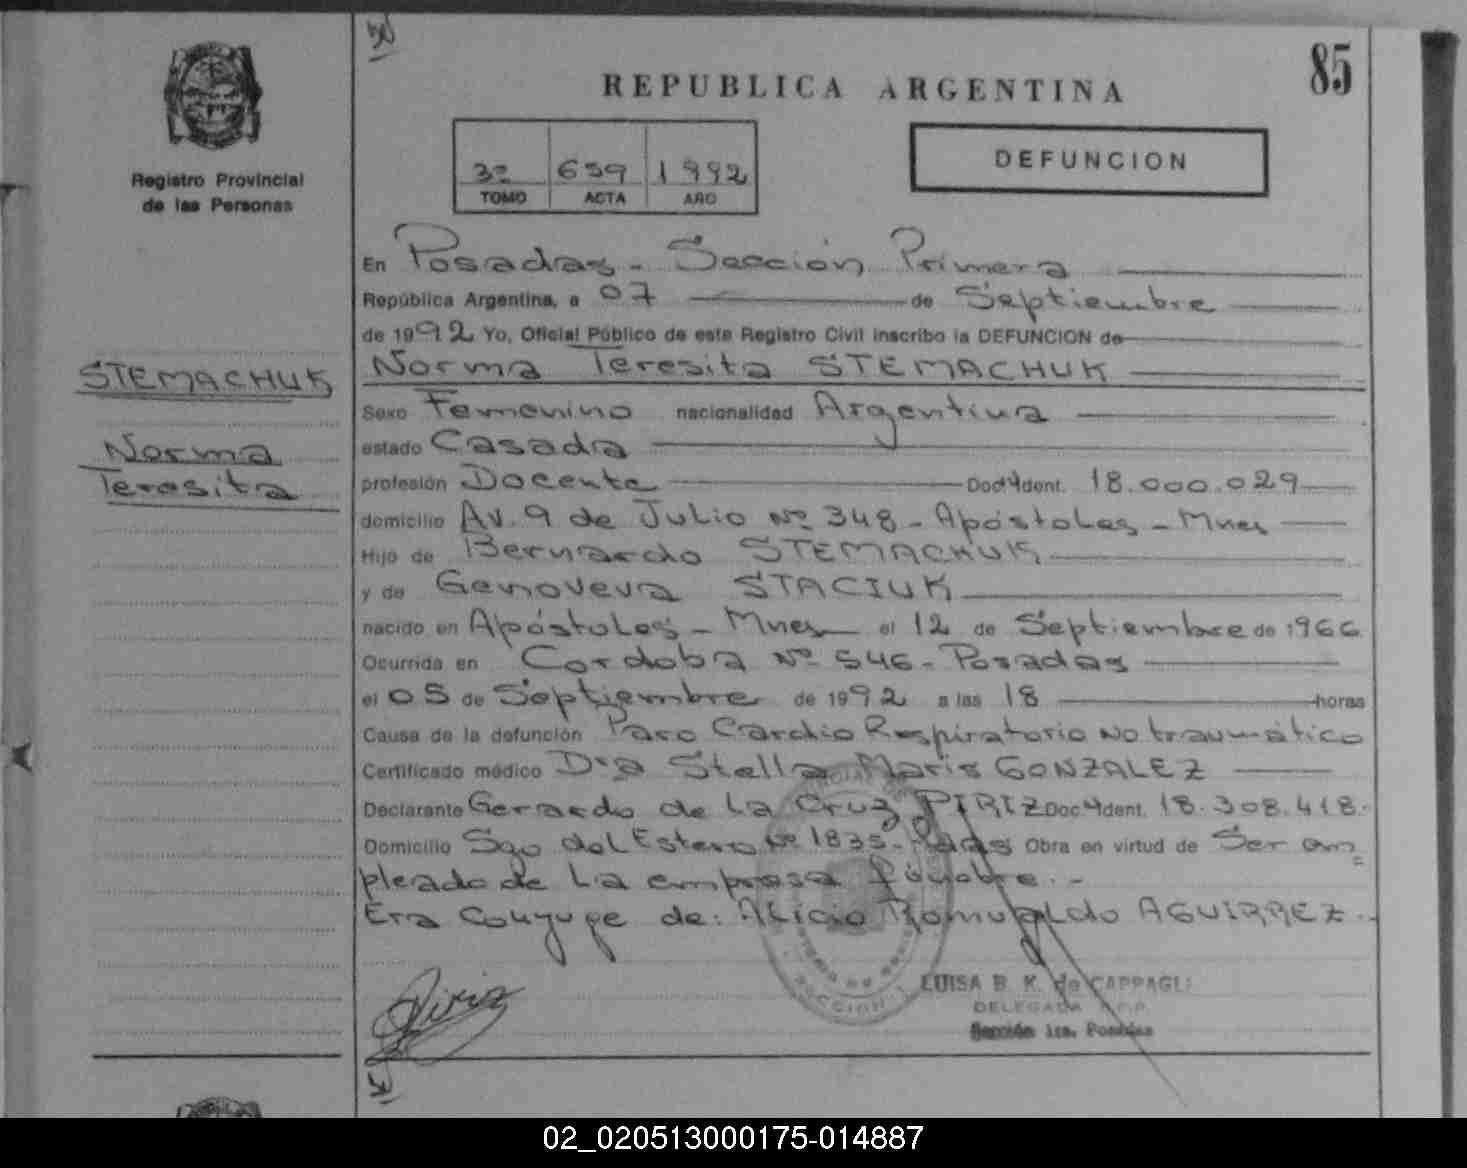 85
REPUBLICA ARGENTINA
Registro Provincial
de las Personas
3º 659 1992
TOMO ACTA AÑO
DEFUNCION
En Posadas - Sección Primera
República Argentina, a 07 de Septiembre
de 1992 Yo, Oficial Público de este Registro Civil inscribo la DEFUNCION de
Norma Teresita STEMACHUK
STEMACHUK
Norma
Teresita
Sexo Femenino nacionalidad Argentina
estado Casada
profesión Docente Doc. Ident. 18.000.029
domicilio Av. 9 de Julio Nº 348 - Apóstoles - Mnes
Hijo de Bernardo STEMACHUK
y de Genoveva STACIUK
nacido en Apóstoles - Mnes el 12 de Septiembre de 1966
Ocurrida en Cordoba Nº 546 - Posadas
el 05 de Septiembre de 1992 a las 18 horas
Causa de la defunción Paro Cardio Respiratorio No traumático
Certificado médico Dra Stella Maris GONZALEZ
Declarante Gerardo de La Cruz PIRIZ Doc. Ident. 18.308.418.
Domicilio Sgo del Estero Nº 1835 - Pdas Obra en virtud de Ser em=
pleado de La empresa fúnebre. -
Era Conyuge de: Alicio Romualdo AGUIRREZ.
Piriz
LUISA B. K. de CAPPAGLI
DELEGADA R.P.P.
Sección 1ra. Posadas
SECCION 1
02_020513000175-014887